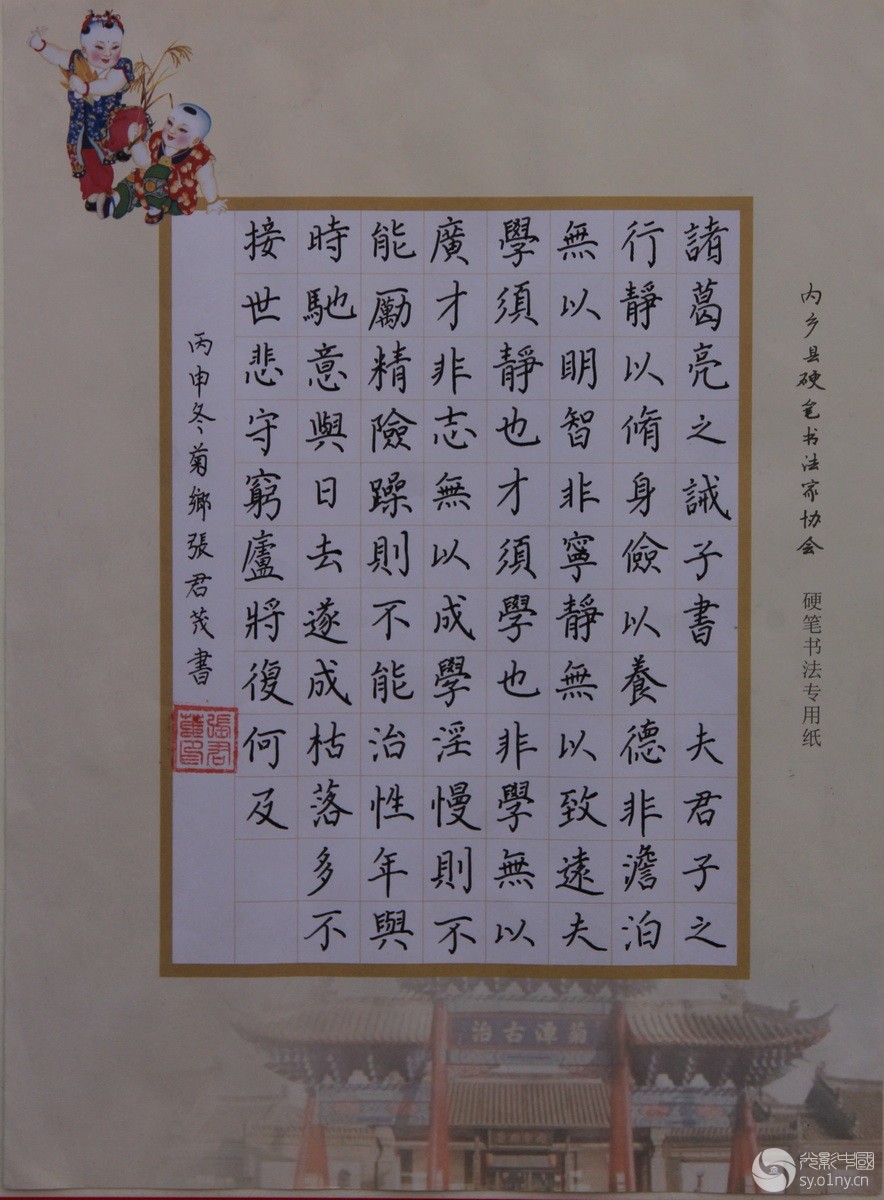 内乡县硬笔书法家协会 硬笔书法专用纸
諸葛亮之誡子書 夫君子之
行靜以脩身儉以養德非澹泊
無以眀智非寧靜無以致遠夫
學須靜也才須學也非學無以
廣才非志無以成學淫慢則不
能勵精險躁則不能治性年與
時馳意與日去遂成枯落多不
接世悲守窮廬將復何及
丙申冬菊鄉張君茂書
張君茂印
菊潭古治
光影中國
sy.o1ny.cn